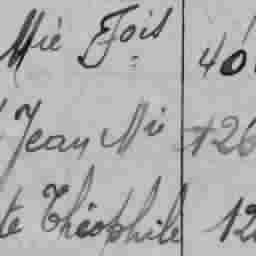 Mie Fois 40
Jean Nie +26
te Théophile 12